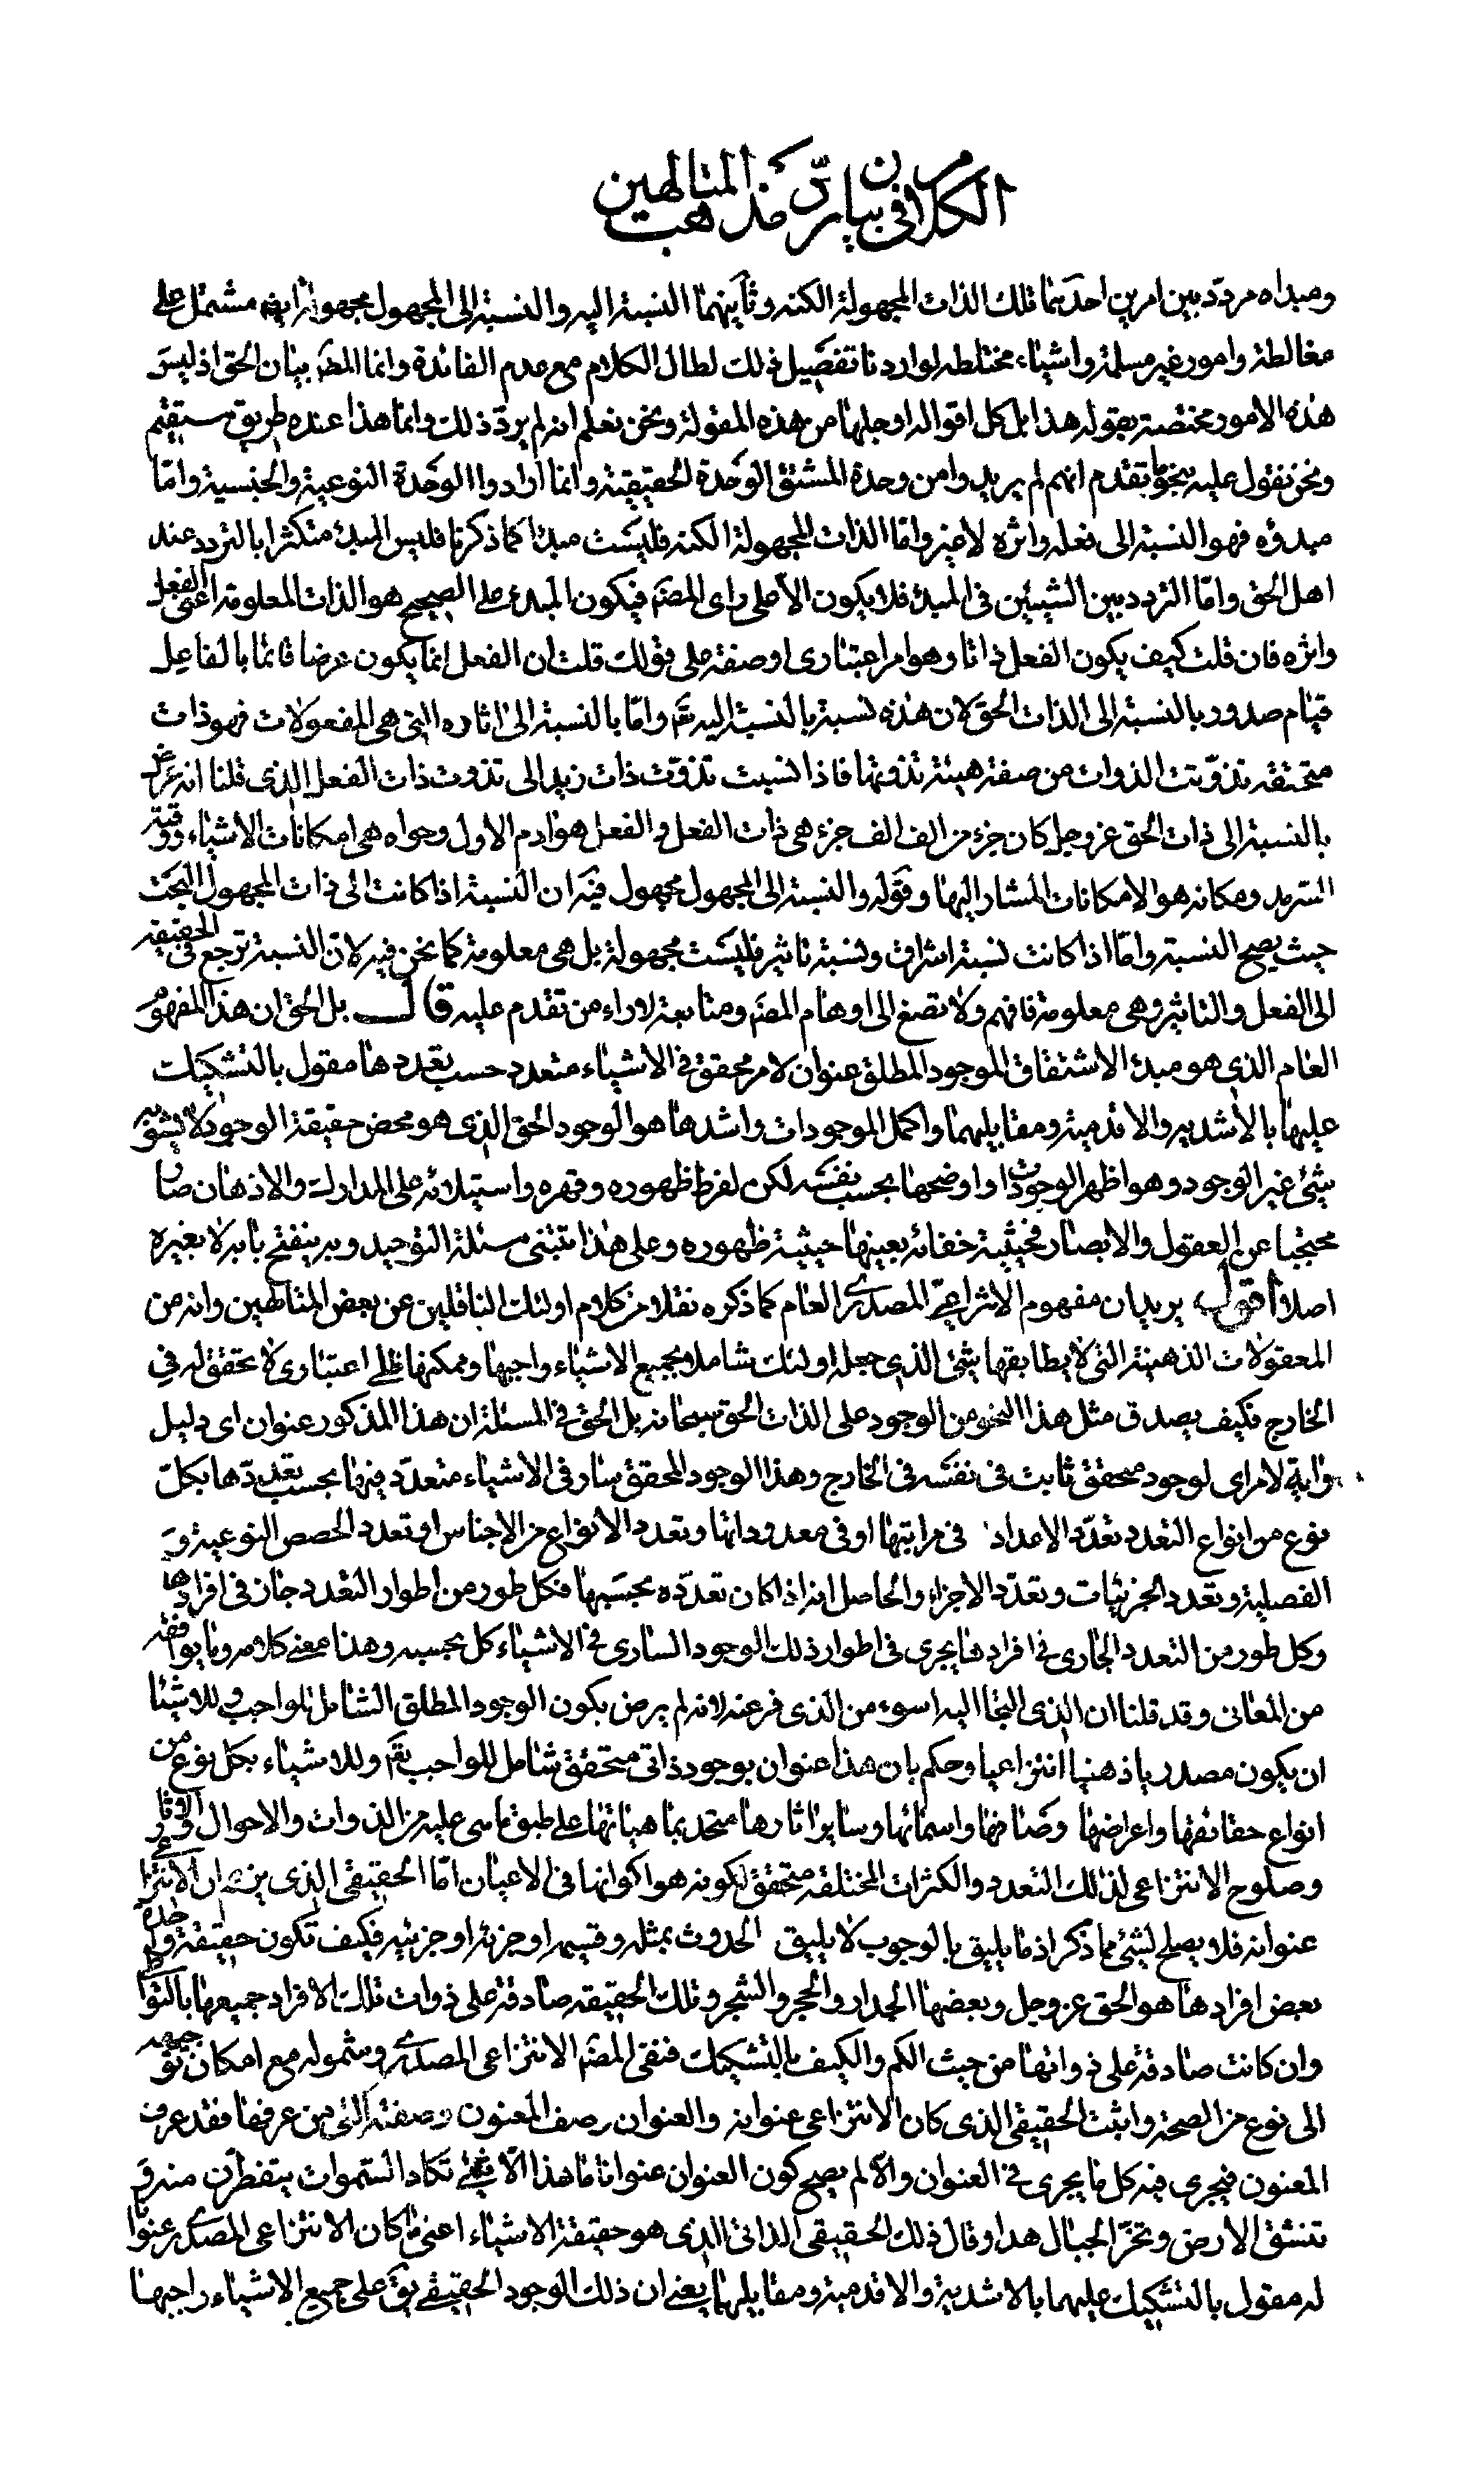 الكلام فى بيان ردّ مذهب المتالهين
ومبداه مردّد بين امرين احدهما تلك الذات المجهولة الكنه وثانيهما النسبة اليه والنسبة الى المجهول مجهولة ايضا مشتمل على
مغالطة وامور غير مسلمة واشياء مختلطه لو اردنا تفصيل ذلك لطال الكلام مع عدم الفائدة وانما المقصـ بيان الحق اذ ليس
هذه الامور مختصة بقوله هذا بل كل اقواله او جلها من هذه المقولة ونحن نعلم انه لم يردّ ذلك وانما هذا عنده طريق مستقيم
ونحن نقول عليه بنحو ما تقدم انهم لم يريدوا من وحدة المشتق الوحدة الحقيقية وانما ارادوا الوحدة النوعية والجنسية وامّا
مبدؤه فهو النسبة الى فعله واثره لا غير وامّا الذات المجهولة الكنه فليست مبدءا كما ذكرنا فليس المبدء متكثرا بالتردد عند
اهل الحق وامّا التردد بين الشيئين فى المبدء فلا يكون الا على راى المصنـ فيكون المبدء على الصحيح هو الذات المعلومة اعنى الفعل
واثره فان قلت كيف يكون الفعل ذاتا وهو امر اعتبارى او صفة على قولك قلت ان الفعل انما يكون عرضا قائما بالفاعل
قيام صدور بالنسبة الى الذات الحق لان هذه نسبة بالنسبة اليه تعـ وامّا بالنسبة الى اثاره التى هى المفعولات فهو ذات
متحققه تذوّتت الذوات من صفة هيئة تذوتها فاذا نسبت تذوّت ذات زيد الى تذوت ذات الفعل الذى قلنا انه عرض
بالنسبة الى ذات الحق عز وجل كان جزء من الف الف جزء هى ذات الفعل والفعل هو ادم الاول وحواه هى امكانات الاشياء ووقته
السّرمد ومكانه هو الامكانات المشار اليها وقوله والنسبة الى المجهول مجهول فيه ان النسبة اذا كانت الى ذات المجهول البحت
حيث يصح النسبة وامّا اذا كانت نسبة اشراق ونسبة تاثير فليست مجهولة بل هى معلومة كما نحن فيه لانّ النسبة ترجع فى الحقيقة
الى الفعل والتاثير وهى معلومة فافهم ولا تصغ الى اوهام المصنـ ومتابعة لاراء من تقدم عليه قال بل الحق ان هذا المفهوم
العام الذى هو مبدء الاشتقاق للموجود المطلق عنوان لامر محقق فى الاشياء متعدد حسب تعددها مقول بالتشكيك
عليها بالاشدية والاقدمية ومقابليهما واكمل الموجودات واشدها هو الوجود الحق الذى هو محض حقيقة الوجود لا يشوبه
شئ غير الوجود وهو اظهر الوجودات واوضحها بحسب نفسه لكن لفرط ظهوره وقهره واستيلائه على المدارك والاذهان صار
محتجبا عن العقول والابصار فحيثية خفائه بعينها حيثية ظهوره وعلى هذا تبتنى مسئلة التوحيد وبه ينفتح بابه لا بغيره
اصلا اقول يريد ان مفهوم الانتزاعى المصدرى العام كما ذكره نقلا من كلام اولئك الناقلين عن بعض المتالهين وانه من
المعقولات الذهنية التى لا يطابقها شئ الذى جعله اولئك شاملا لجميع الاشياء واجبها وممكنها ظلى اعتبارى لا تحقق له فى
الخارج فكيف يصدق مثل هذا النحو من الوجود على الذات الحق سبحانه بل الحق فى المسئلة ان هذا المذكور عنوان اى دليل
واية لامر اى لوجود محقق ثابت فى نفسه فى الخارج وهذا الوجود المحقق سار فى الاشياء متعدّد فيها بحسب تعددها بكلّ
نوع من انواع التعدد تعدّد الاعداد فى مراتبها او فى معدوداتها وتعدد الانواع من الاجناس او تعدد الحصص النوعية و
الفصلية وتعدد الجزئيات وتعدّد الاجزاء والحاصل انه اذا كان تعدّده بحسبها فكل طور من اطوار التعدد جار فى افرادها
وكل طور من التعدد الجارى فى افرادها يجرى فى اطوار ذلك الوجود السارى فى الاشياء كل بحسبه وهذا معنى كلامه وما يوافقه
من المعانى وقد قلنا ان الذى التجا اليه اسوء من الذى فر عنه لانه لم يرض بكون الوجود المطلق الشامل للواجب وللاشيئا
ان يكون مصدريا ذهنيا انتزاعيا وحكم بان هذا عنوان بوجود ذاتى متحقق شامل للواجب تعـ وللاشياء بكل نوع من
انواع حقائقها واعراضها وصفاتها واسمائها وساير اثارها متحد بماهياتها على طبق ما هى عليه من الذوات والاحوال والاثار
وصلوح الانتزاعى لذلك التعدد والكثرات المختلفه متحقق لكونه هو اكوانها فى الاعيان امّا الحقيقى الذى ان الانتزاعى
عنوانه فلا يصلح لشئ مما ذكر اذ ما يليق بالوجوب لا يليق الحدوث بمثله وقسيمه او جزئه او جزئيه فكيف تكون حقيقة واحدة
بعض افرادها هو الحق عز وجل وبعضها الجدار والحجر والشجر وتلك الحقيقه صادقة على ذوات تلك الافراد جميعها بالتواطى
وان كانت صادقة على ذواتها من حيث الكم والكيف بالتشكيك فنفى المصنـ الانتزاعى المصدرى وشموله مع امكان توجيهه
الى نوع من الصحة واثبت الحقيقى الذى كان الانتزاعى عنوانه والعنوان وصف المعنون وصفته التى من عرفها فقد عرف
المعنون فيجرى فيه كل ما يجرى فى العنوان والّا لم يصح كون العنوان عنوانا ما هذا الّا شئ تكاد السّموات يتفطرن منه و
تنشق الارض وتخرّ الجبال هدا وقال ذلك الحقيقى الذاتى الذى هو حقيقة الاشياء اعنى ما كان الانتزاعى المصدرى عنوانا
له مقول بالتشكيك عليهما بالاشدية والاقدمية ومقابليهما يعنى ان ذلك الوجود الحقيقى يقـ على جميع الاشياء واجبها